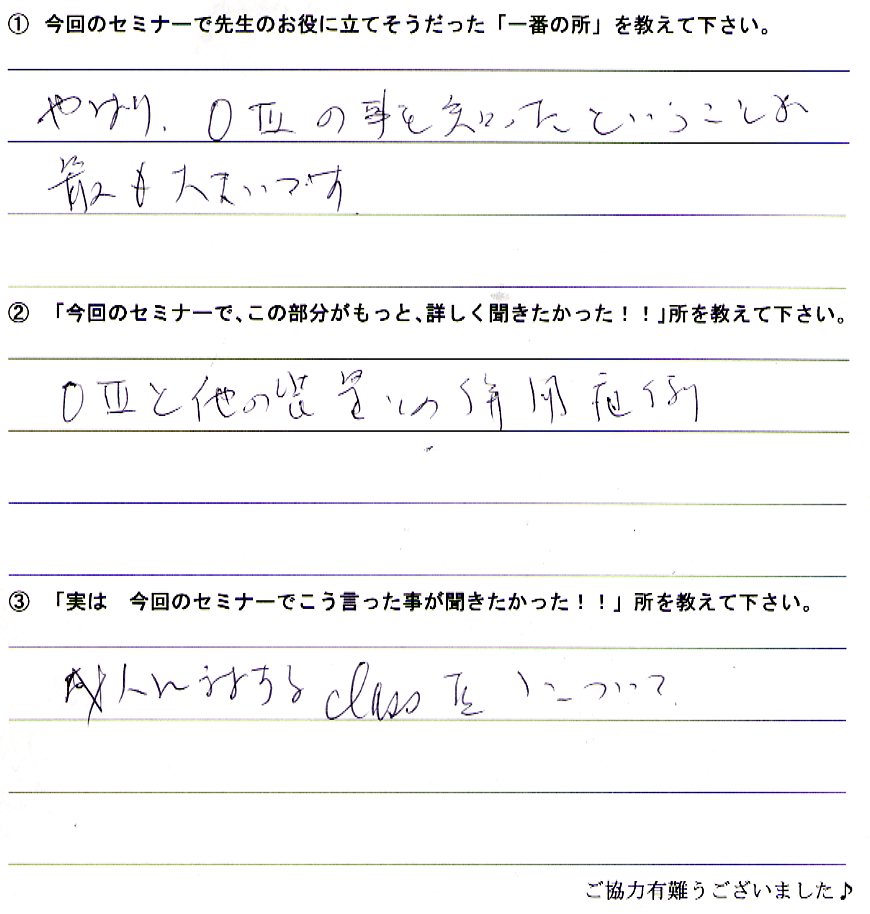 ① 今回のセミナーで先生のお役に立てそうだった「一番の所」を教えて下さい。
やはり、OⅢの事を知ったということが
最も大きいです
② 「今回のセミナーで、この部分がもっと、詳しく聞きたかった！！」所を教えて下さい。
OⅢと他の装置との併用症例
③ 「実は　今回のセミナーでこう言った事が聞きたかった！！」所を教えて下さい。
成人に対する class Ⅲ について
ご協力有難うございました♪